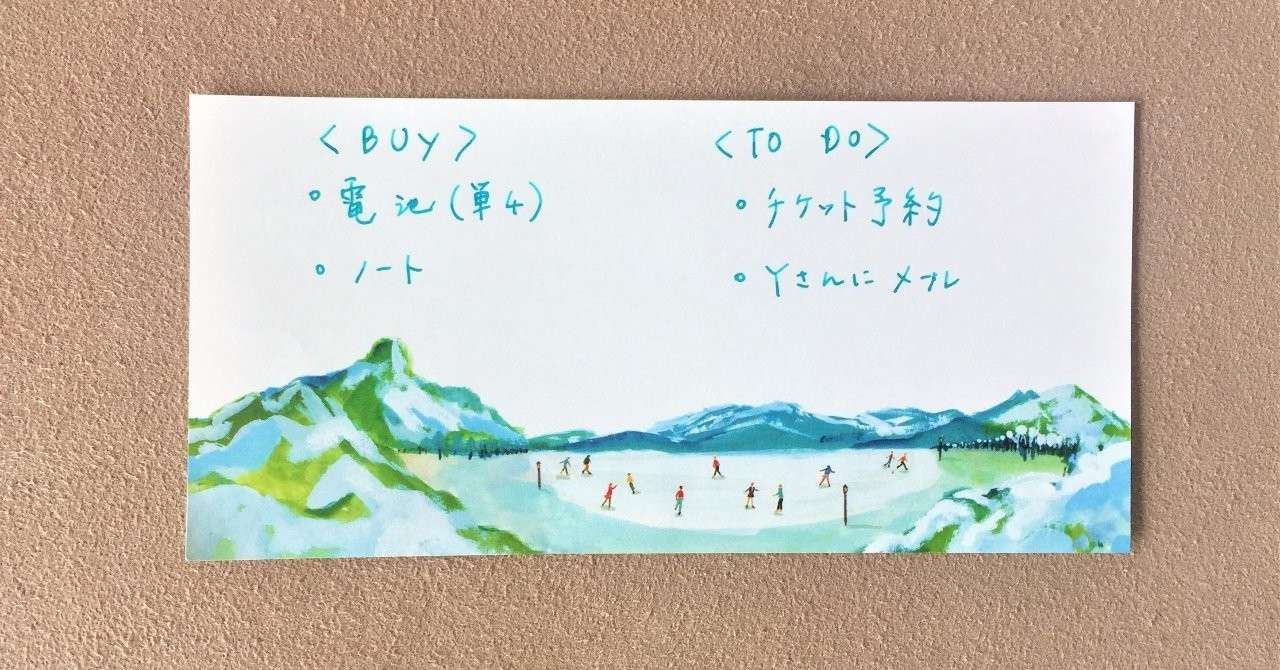 <BUY>
・電池(単4)
・ノート
<TO DO>
・チケット予約
・Yさんにメール